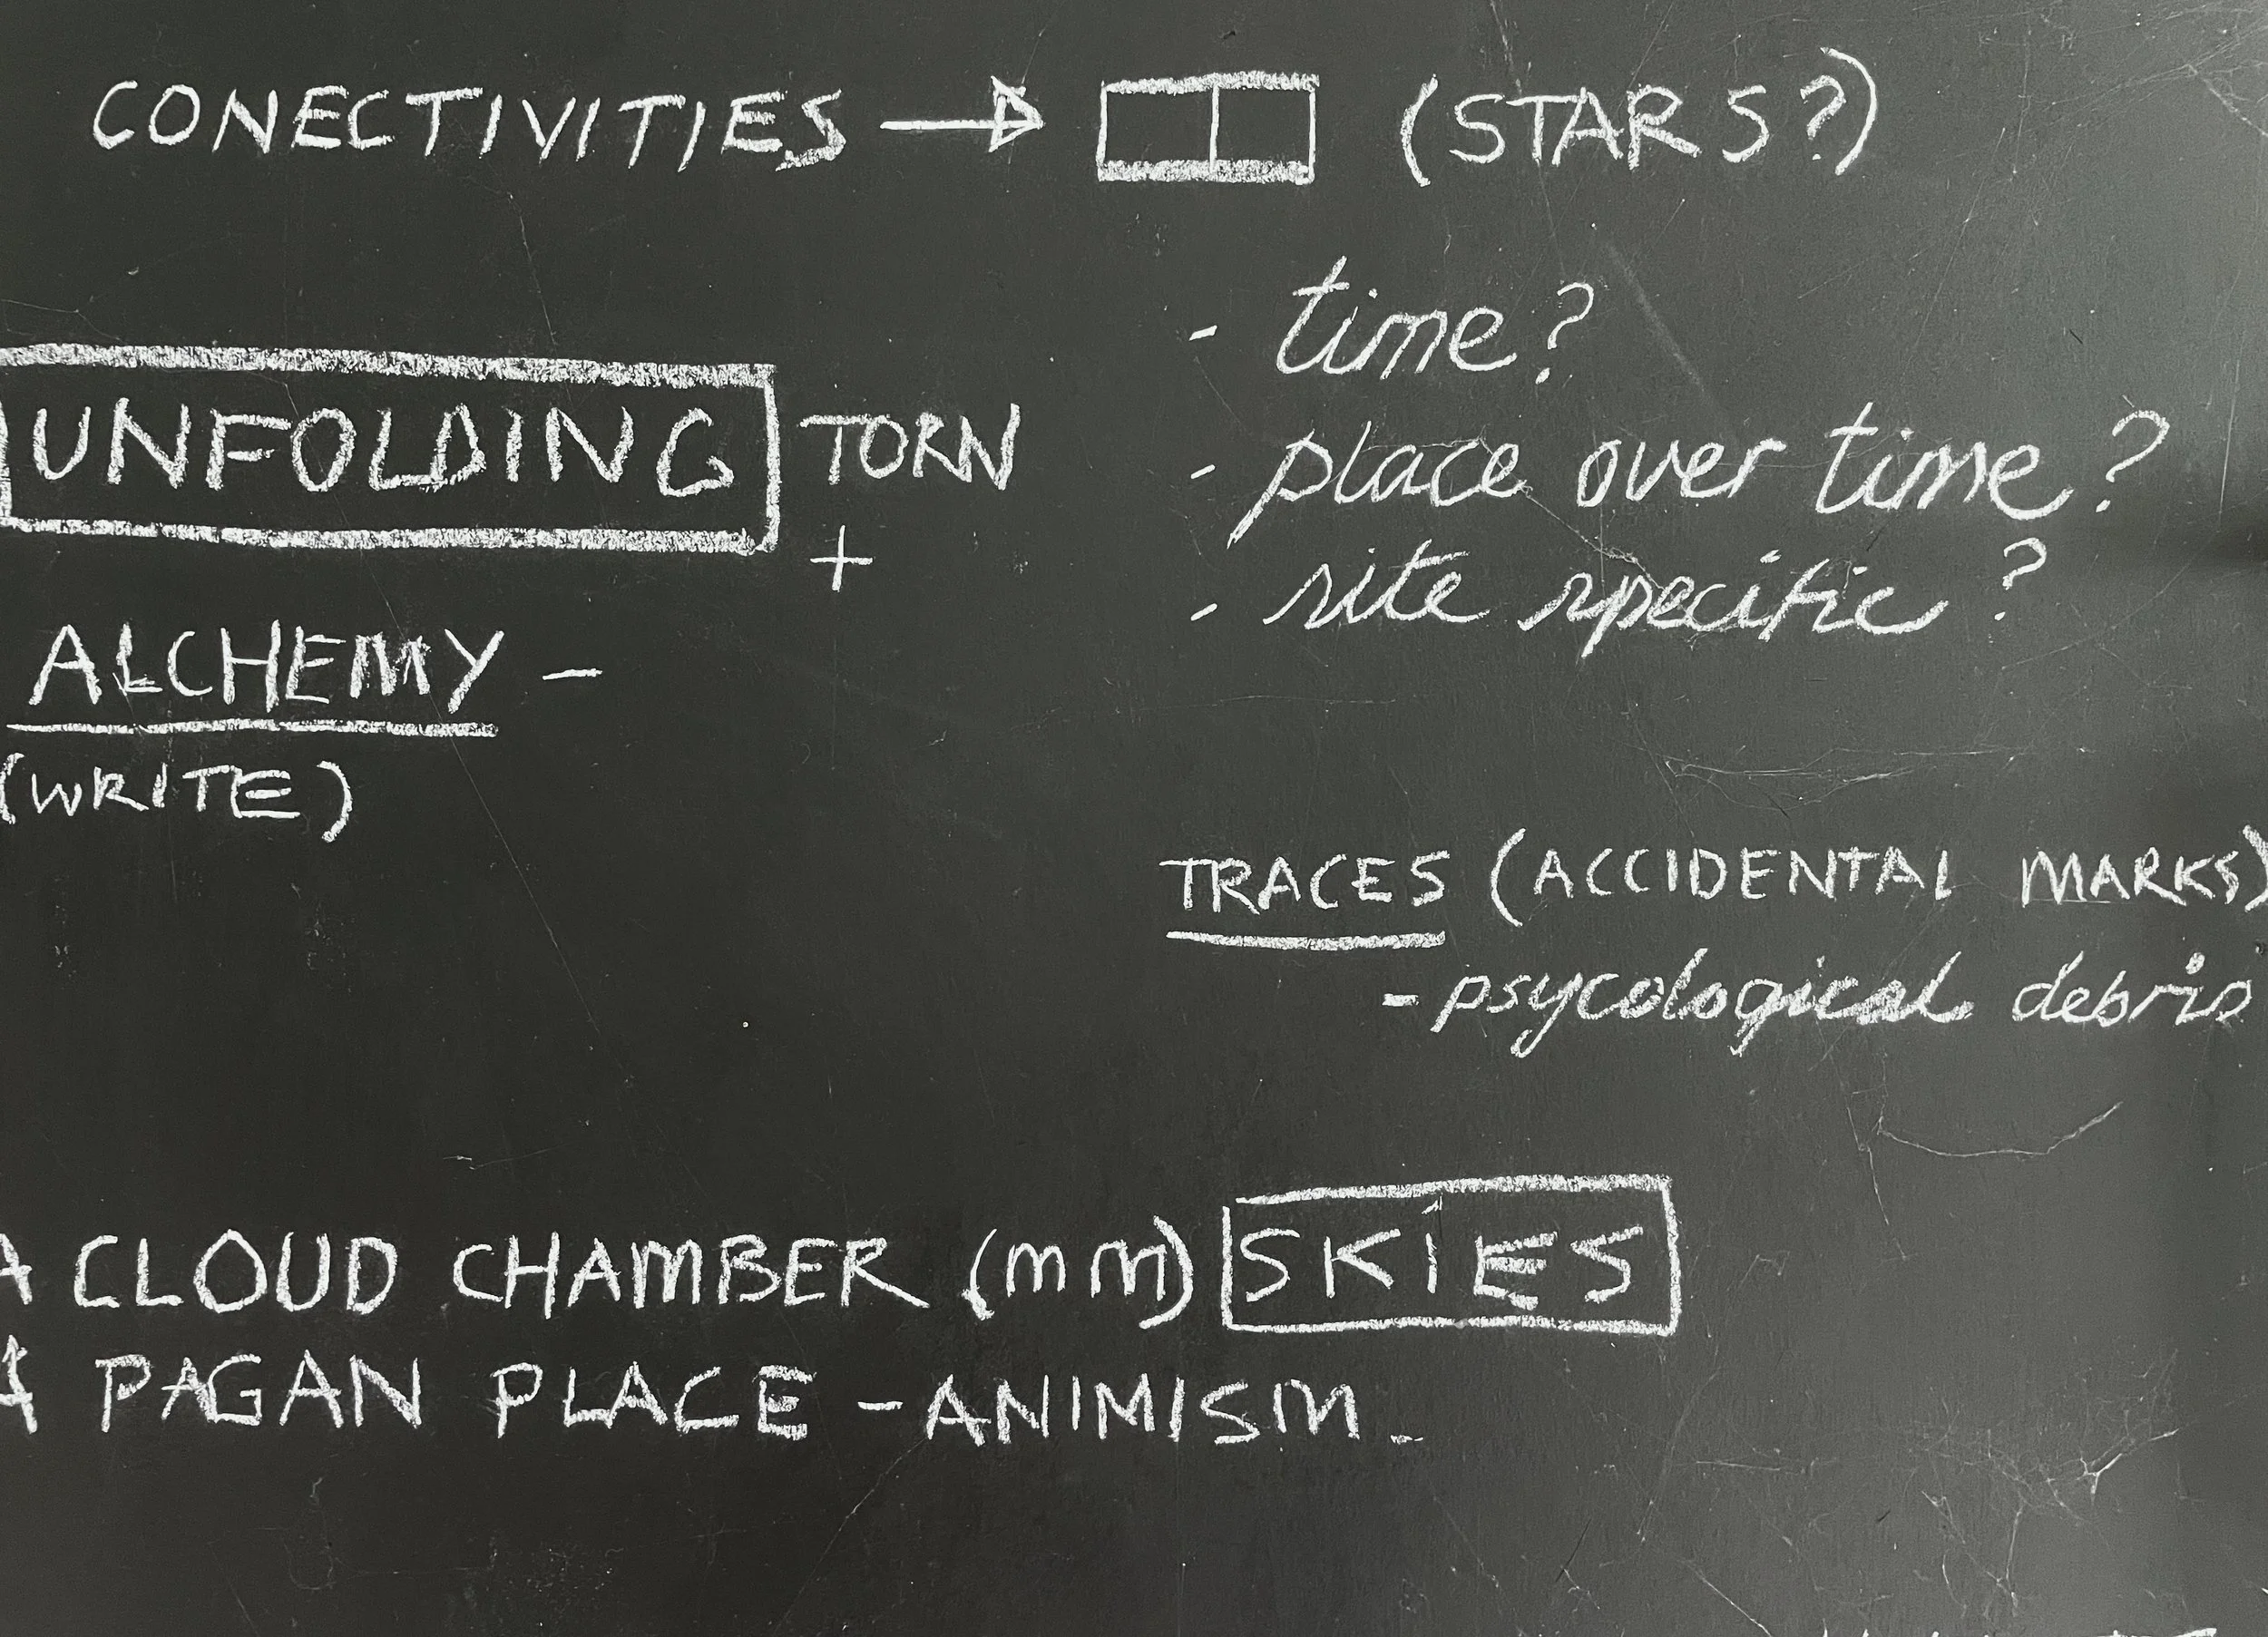 CONECTIVITIES → (STARS?)
- time?
- place over time?
- site specific?
UNFOLDING TORN
+
ALCHEMY -
(WRITE)
TRACES (ACCIDENTAL MARKS)
- psycological debris
A CLOUD CHAMBER (mm) SKIES
A PAGAN PLACE - ANIMISM.